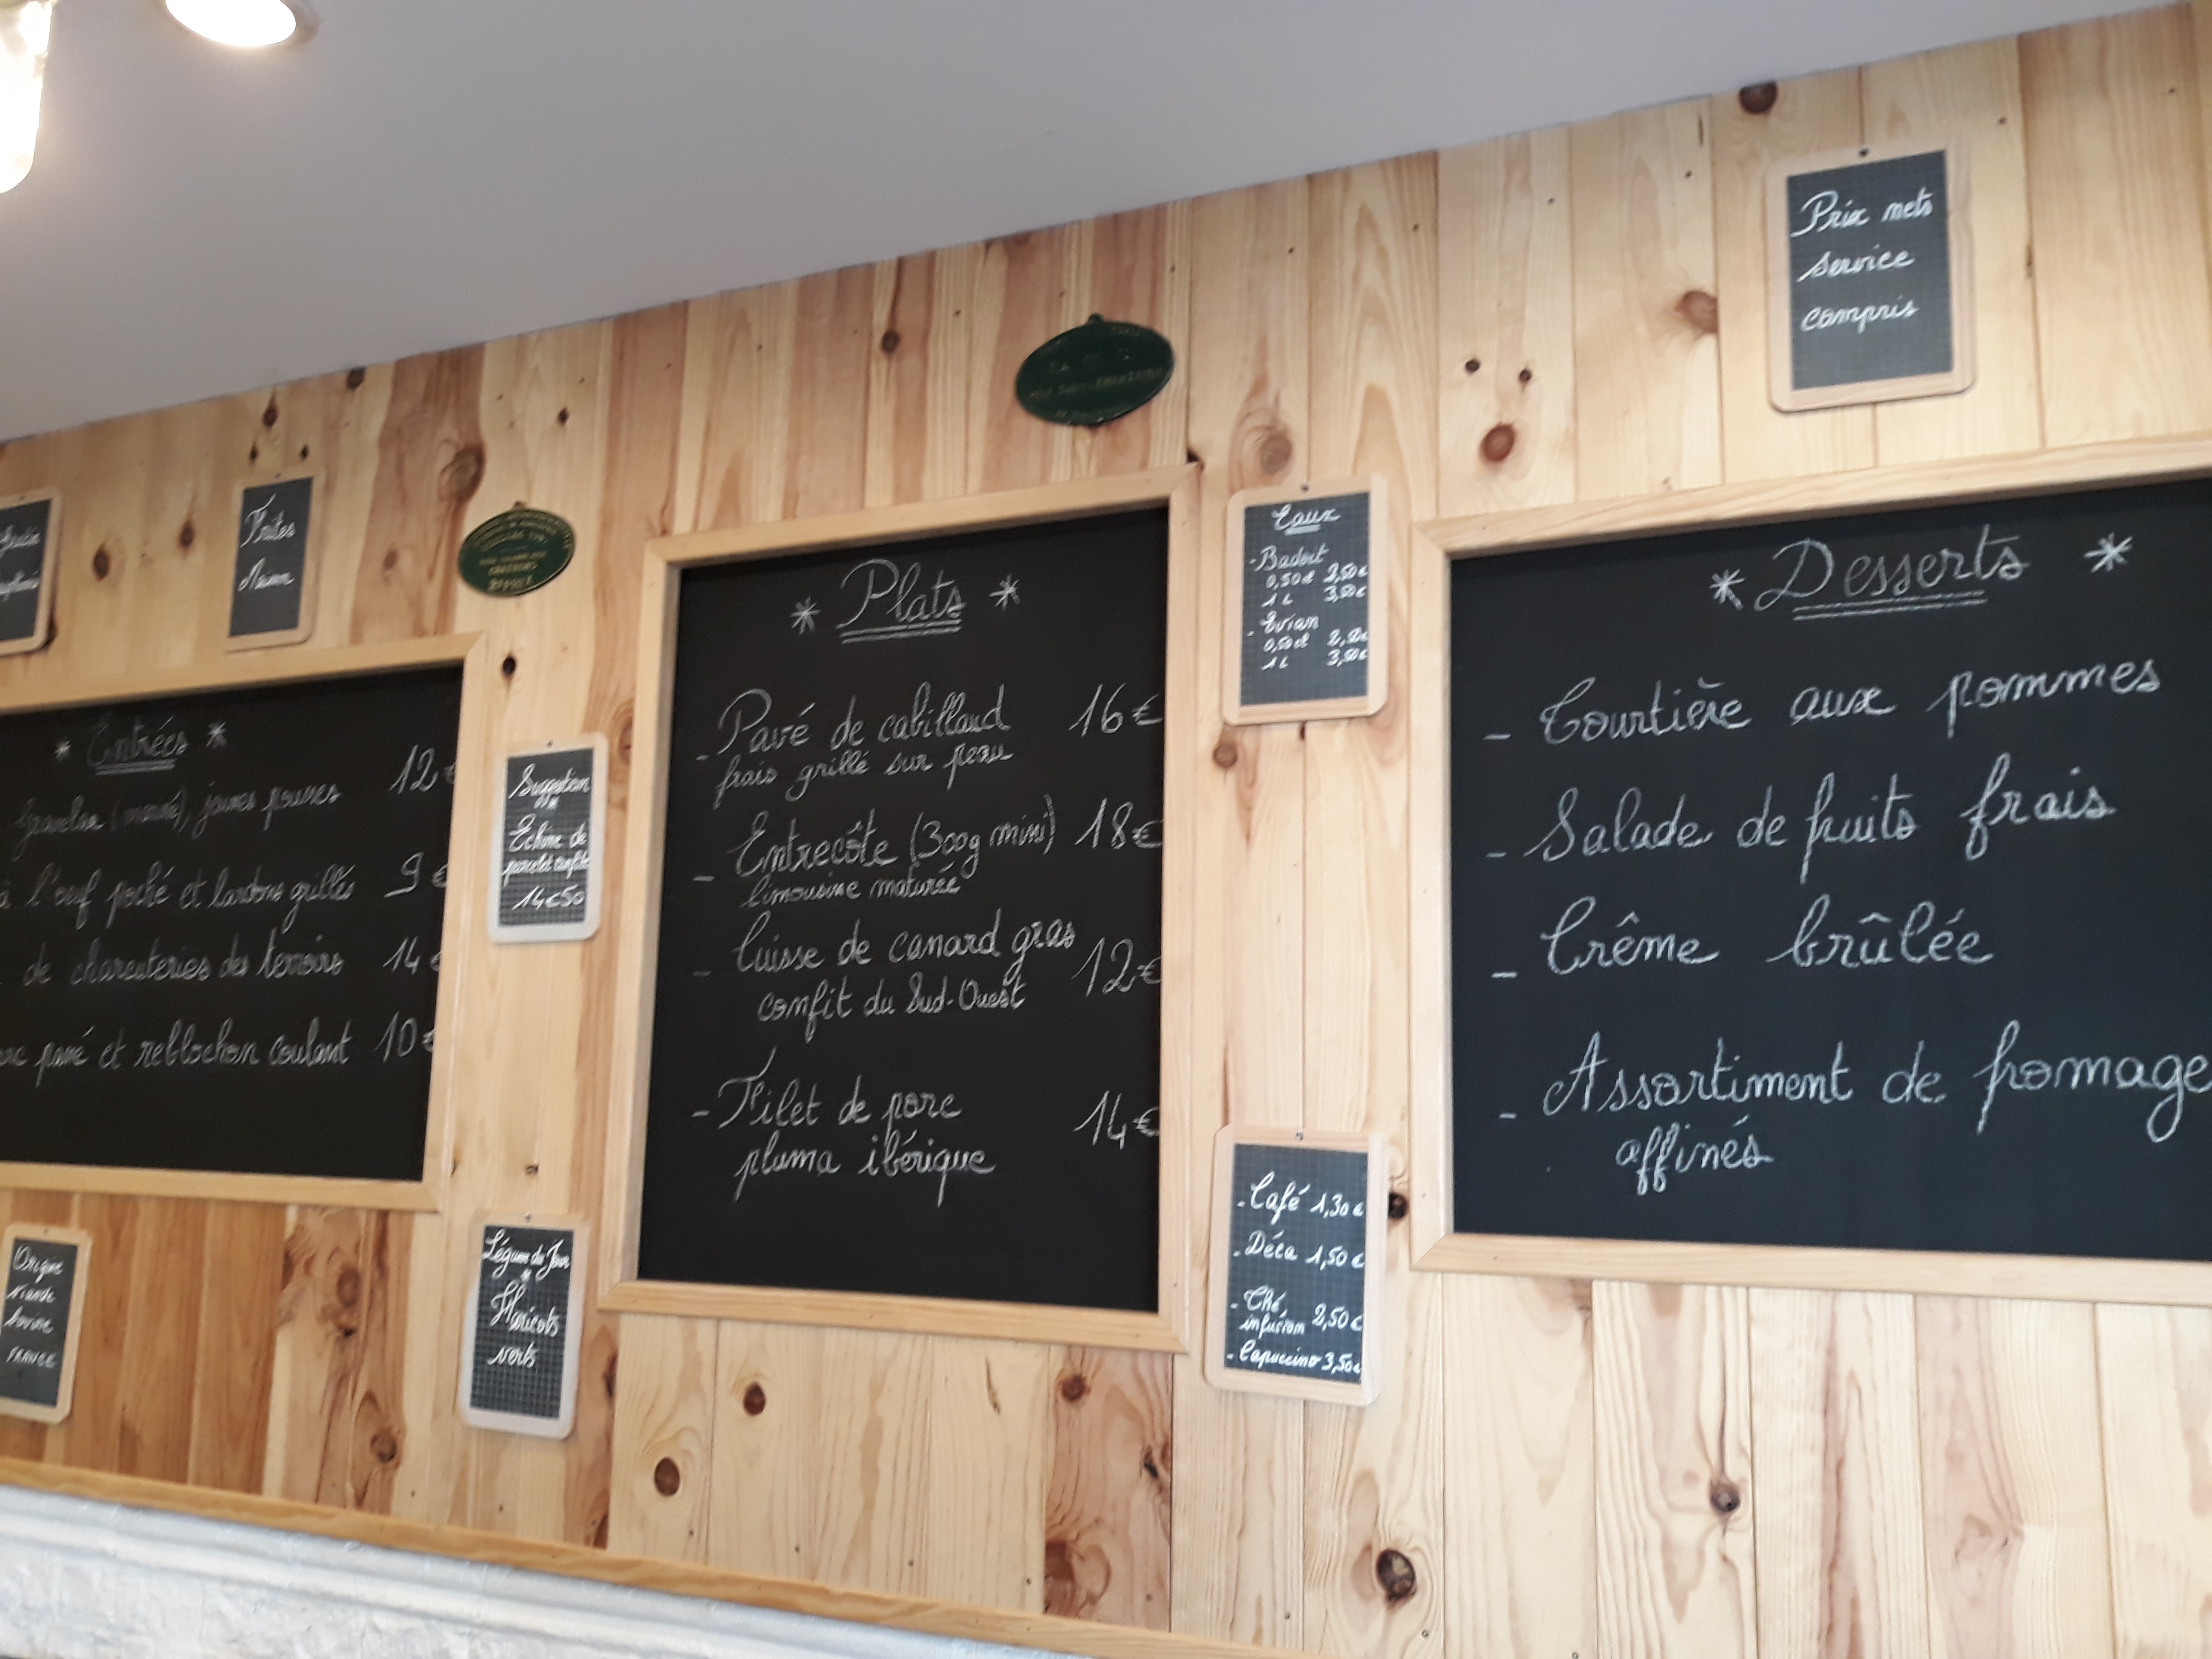 Prix nets
service
compris
Frites
Maison
* Entrées *
Gravelax (mariné), jeunes pousses 12€
à l'œuf poché et lardons grillés 9€
de charcuteries des terroirs 14€
pané et reblochon coulant 10€
Suggestion
Echine de
porcelet confite
14€50
Origine
viande
bovine
FRANCE
Légume du Jour
Haricots
verts
* Plats *
- Pavé de cabillaud 16€
frais grillé sur peau
- Entrecôte (300g mini) 18€
limousine maturée
- Cuisse de canard gras
confit du Sud-Ouest 12€
- Filet de porc 14€
pluma ibérique
Eaux
- Badoit
0,50cl 2,50€
1L 3,50€
- Evian
0,50cl
1L 3,50€
- Café 1,30€
- Déca 1,50€
- Thé
infusion 2,50€
- Capuccino 3,50€
* Desserts *
- Tourtière aux pommes
- Salade de fruits frais
- Crême brûlée
- Assortiment de fromage
affinés